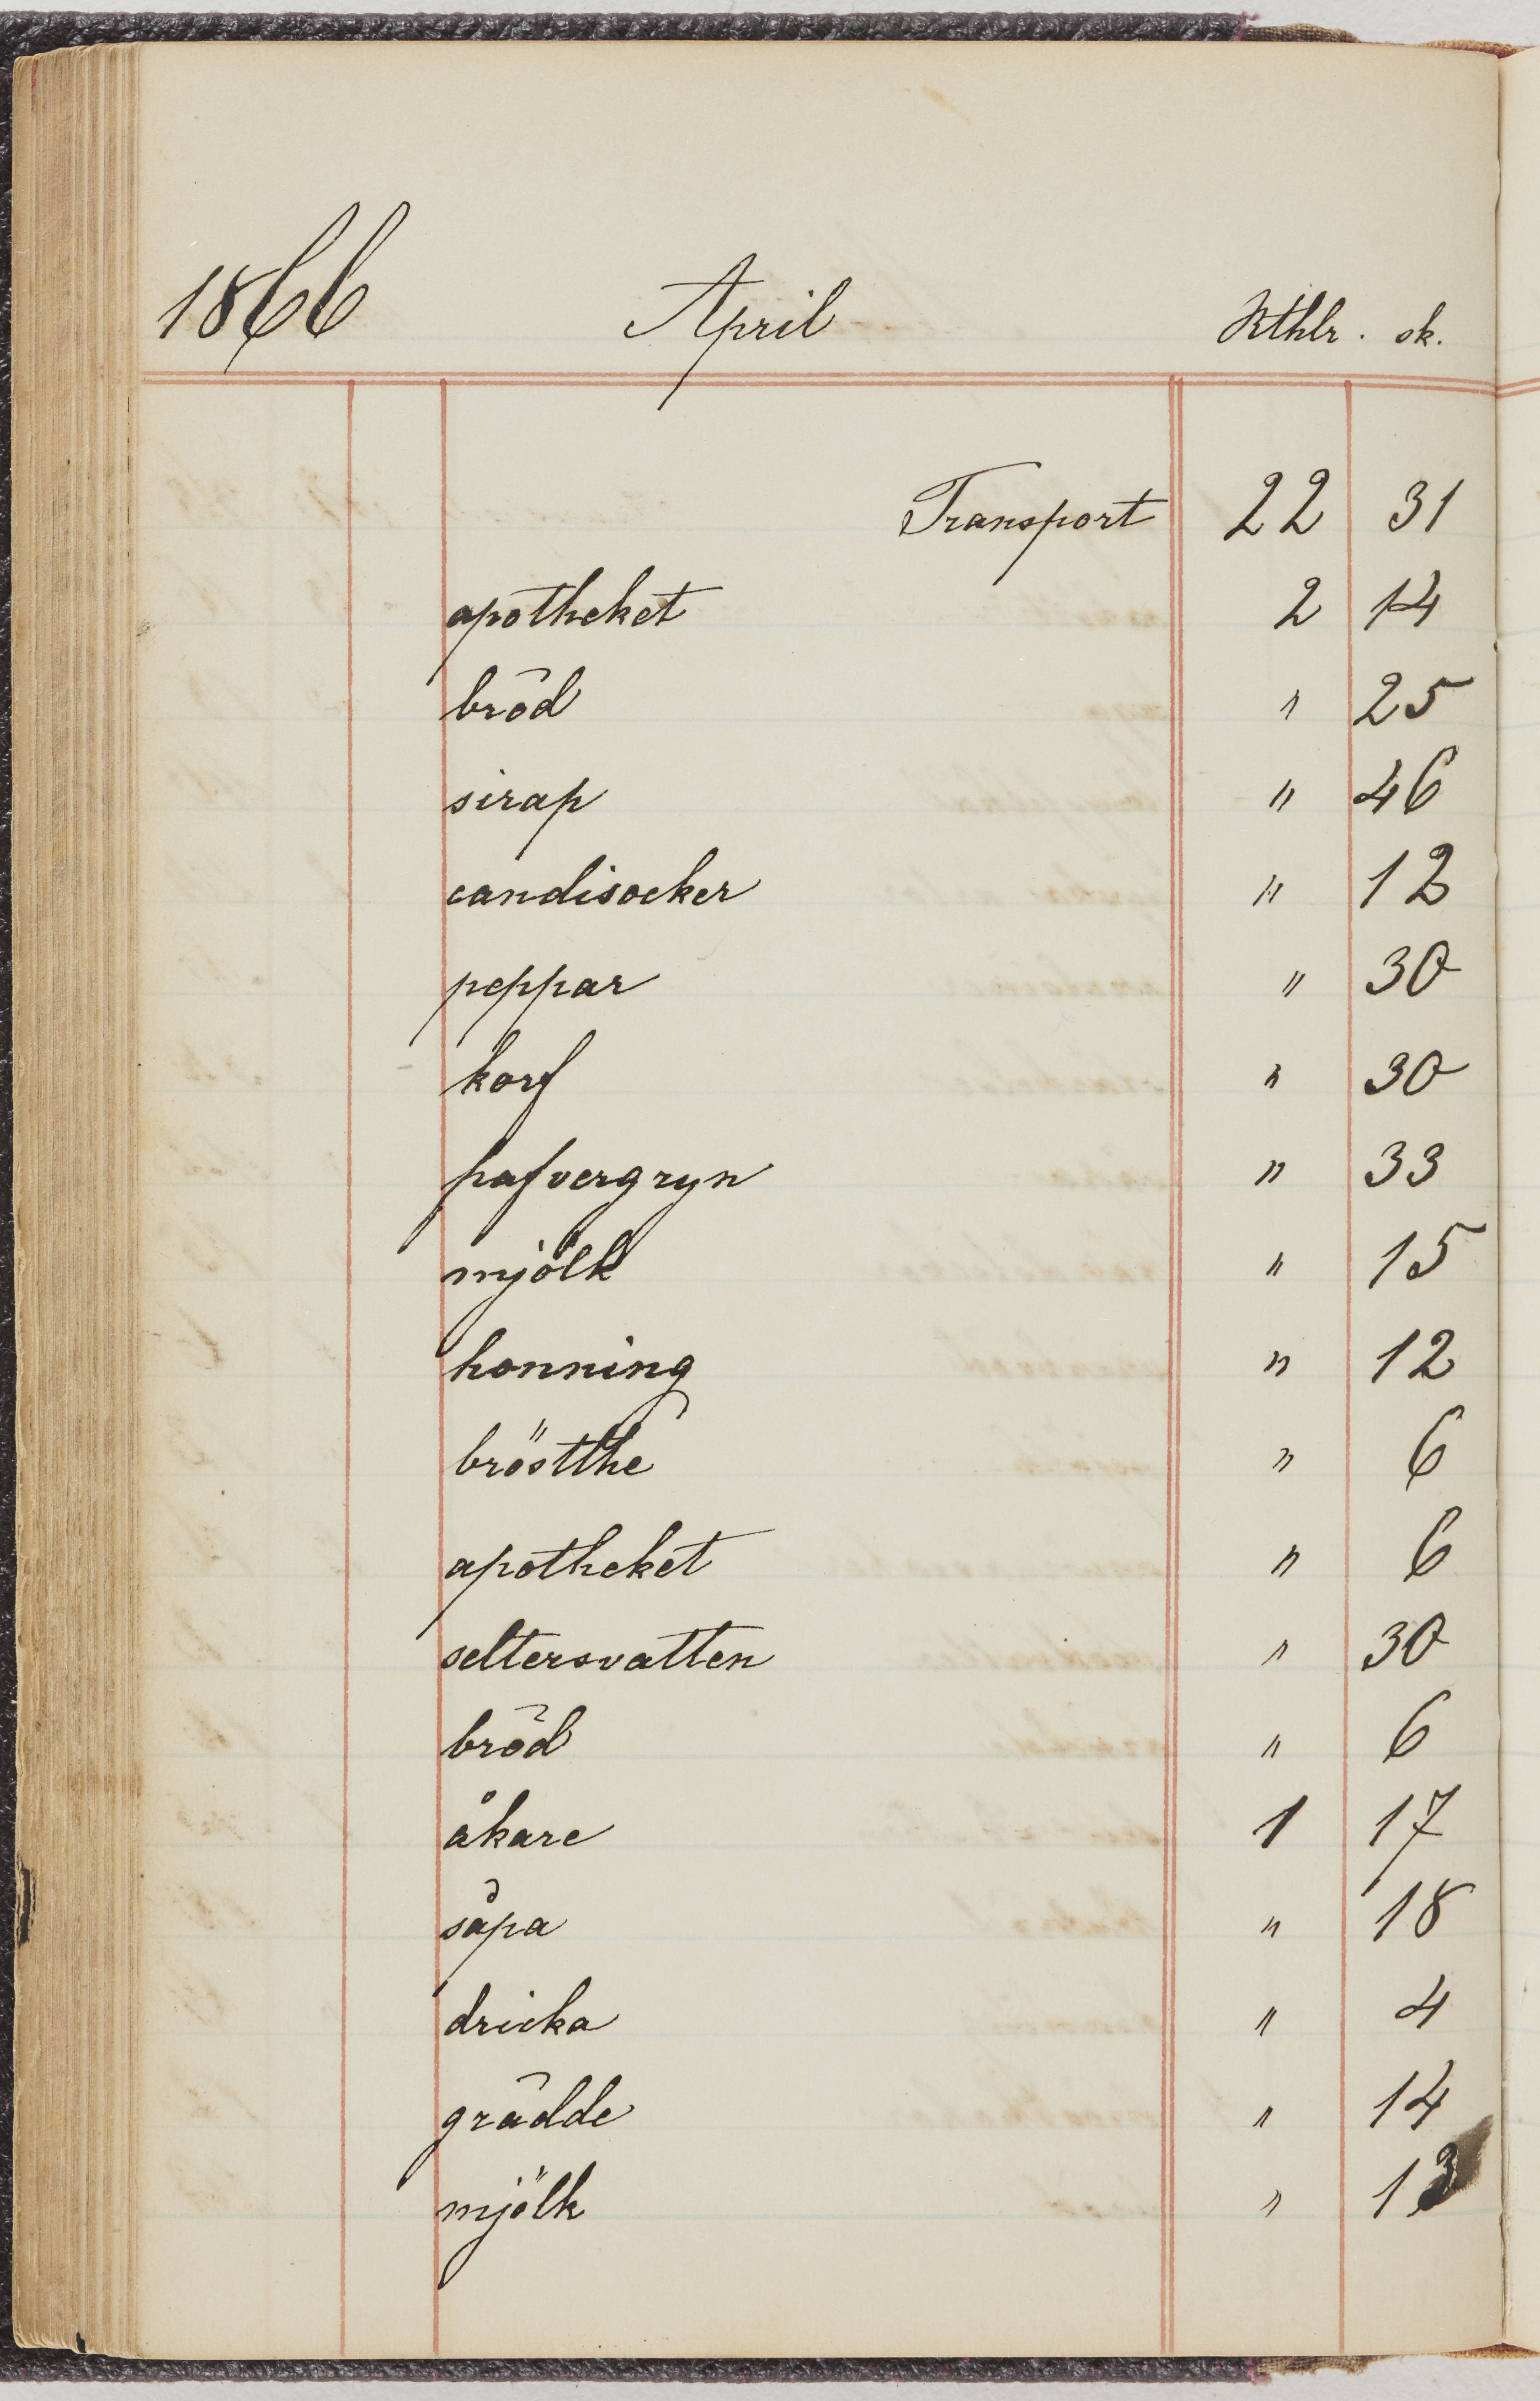 1866 April Rthlr. sk.
Transport 22 31
apotheket 2 14
bröd " 25
sirap " 46
candisocker " 12
peppar " 30
korf " 30
hafvergryn " 33
mjölk " 15
honning " 12
bröstthe " 6
apotheket " 6
seltersvatten " 30
bröd " 6
åkare 1 17
såpa " 18
dricka " 4
grädde " 14
mjölk " 13